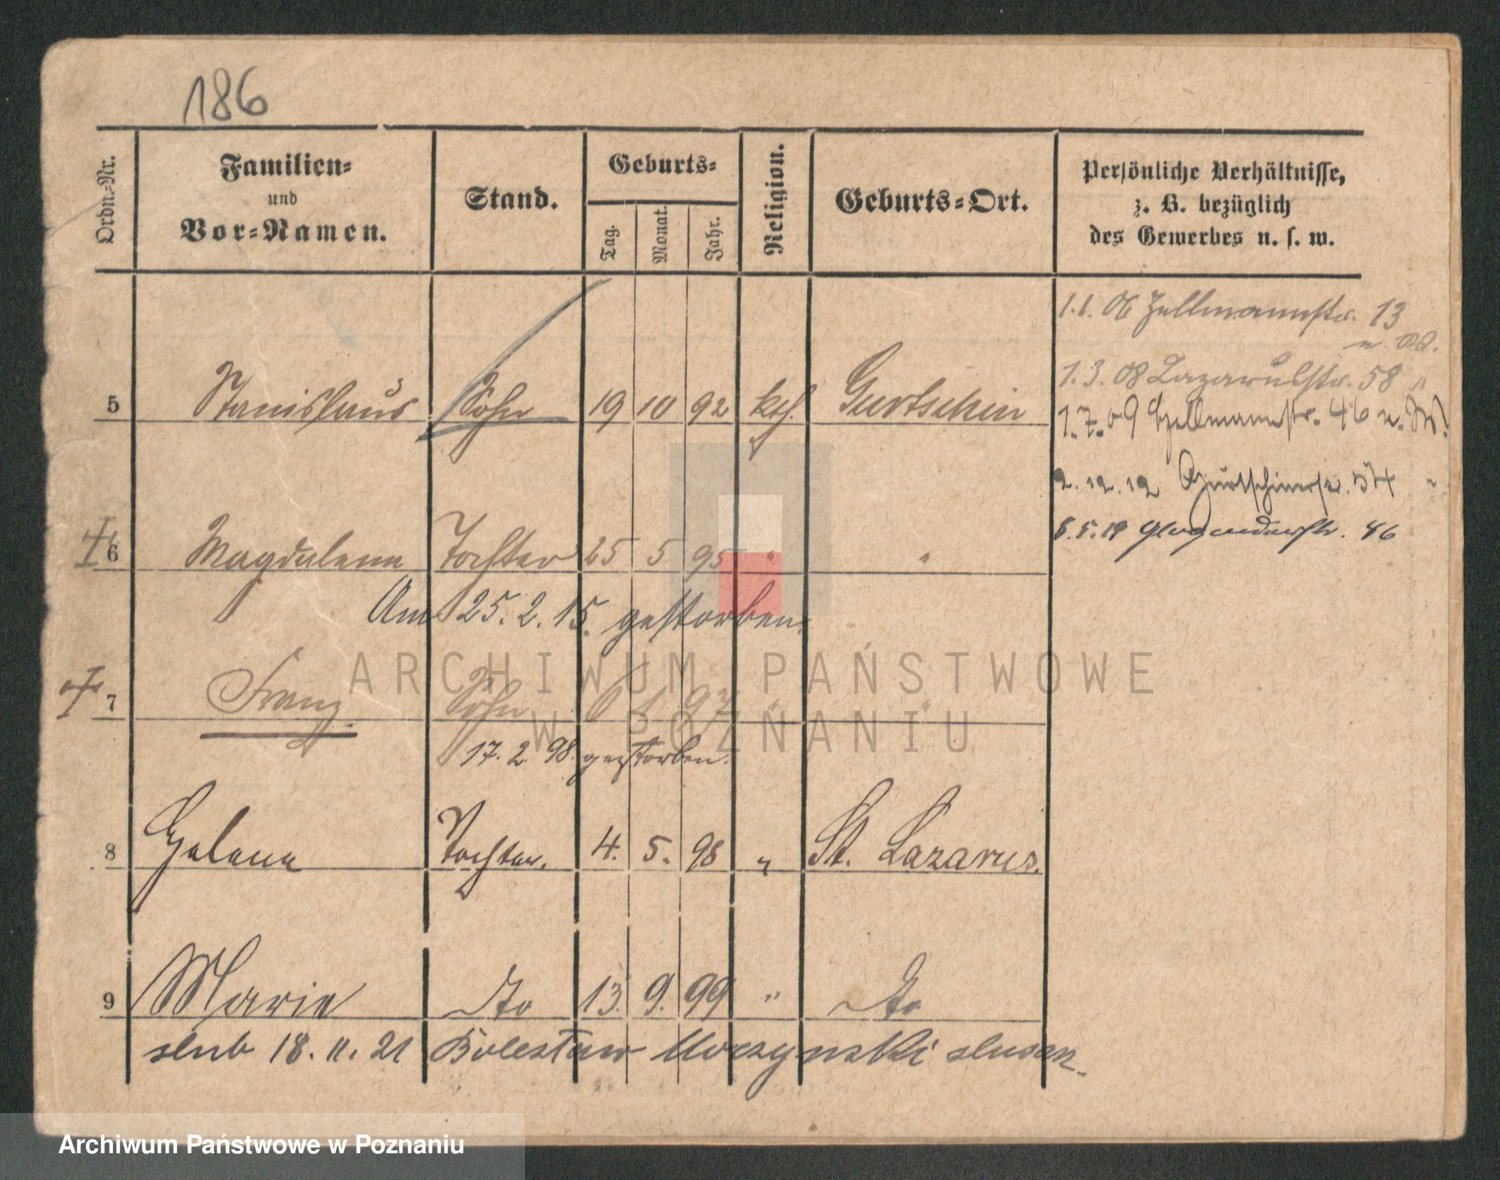 186
Ordn.-Nr.
Familien-
und
Vor-Namen.
Stand.
Geburts-
Tag.
Monat.
Jahr.
Religion.
Geburts-Ort.
Persönliche Verhältnisse,
z. B. bezüglich
des Gewerbes u. s. w.
1.1. 06 Hellmannstr. 13
1.3. 08 Lazarusstr. 58 "
5 Stanislaus Sohn 19 10 92 kth. Gurtschin
1.7.09 Hellmannstr. 46
2.12.12 Gurtschinerstr. 54 "
8.5.19 Glogauerstr. 86
6 Magdalena Tochter 25 5 95 " "
Am 25. 2. 15. gestorben.
7 Franz Sohn 6 1 97 " "
17. 2. 98. gestorben.
8 Helene Tochter. 4. 5. 98 " St. Lazarus.
9 Marie dto 13. 9. 99 " dto
slub 18. 11. 21 Bolesław
ARCHIWUM PAŃSTWOWE
W POZNANIU
Archiwum Państwowe w Poznaniu